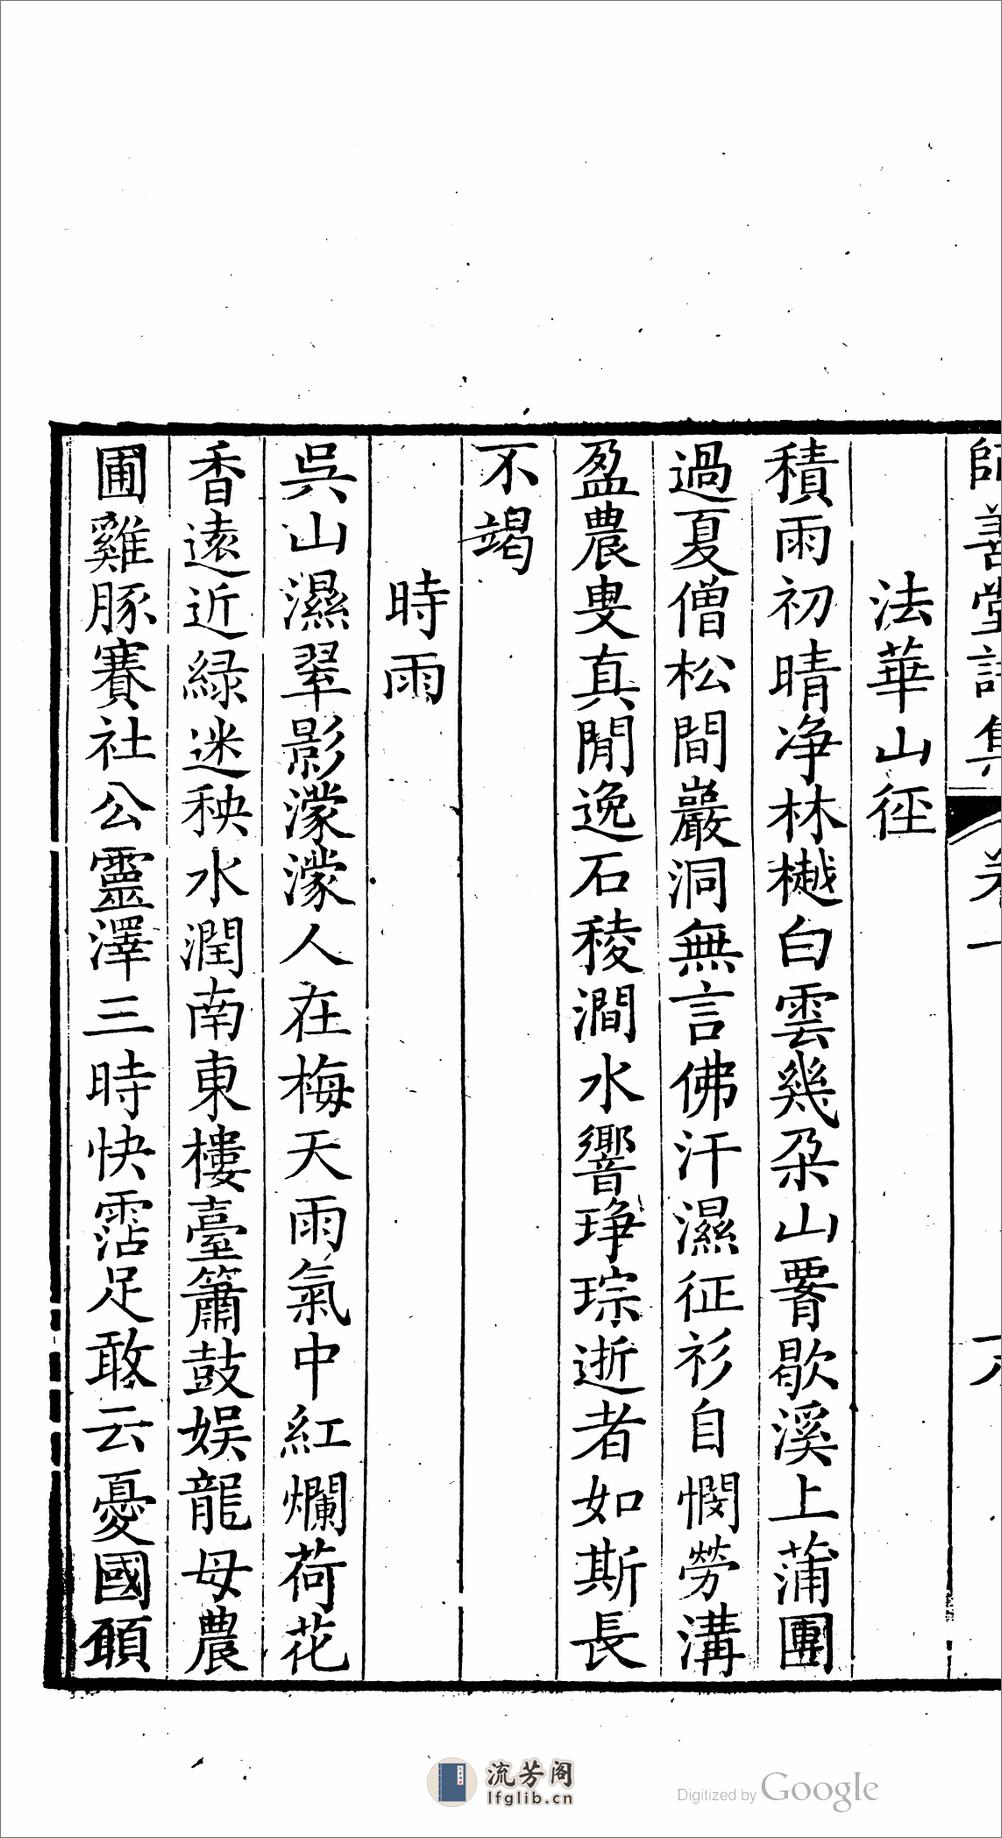 師善堂詩集 卷一
法華山徑
積雨初晴净林樾白雲幾朶山腰歇溪上蒲團
過夏僧松間巖洞無言佛汗濕征衫自憫勞溝
盈農叟真閒逸石稜澗水響琤琮逝者如斯長
不竭
時雨
吳山濕翠影濛濛人在梅天雨氣中紅爛荷花
香遠近綠迷秧水潤南東樓臺簫鼓娱龍母農
圃雞豚賽社公靈澤三時快霑足敢云憂國願
流芳阁
lfglib.cn
Digitized by Google